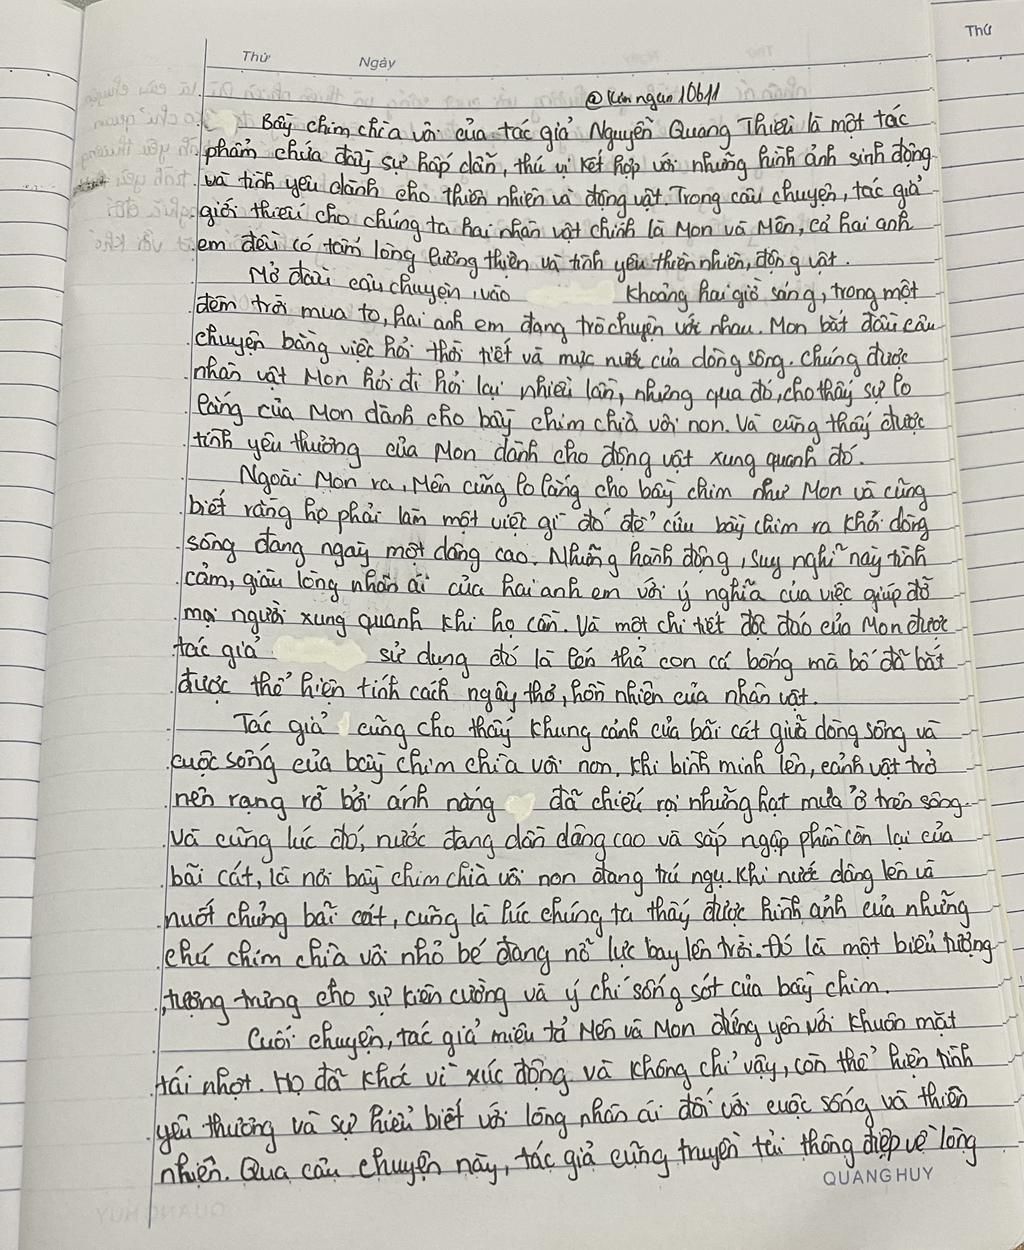 Thứ
Thứ Ngày
@kimngan10611
Bầy chim chìa vôi của tác giả Nguyễn Quang Thiều là một tác
phẩm chứa đầy sự hấp dẫn, thú vị kết hợp với những hình ảnh sinh động
và tình yêu dành cho thiên nhiên và động vật. Trong câu chuyện, tác giả
giới thiệu cho chúng ta hai nhân vật chính là Mon và Mên, cả hai anh
em đều có tấm lòng lương thiện và tình yêu thiên nhiên, động vật.
Mở đầu câu chuyện, vào khoảng hai giờ sáng, trong một
đêm trời mưa to, hai anh em đang trò chuyện với nhau. Mon bắt đầu câu
chuyện bằng việc hỏi thời tiết và mực nước của dòng sông. Chúng được
nhân vật Mon hỏi đi hỏi lại nhiều lần, nhưng qua đó, cho thấy sự lo
lắng của Mon dành cho bầy chim chìa vôi non. Và cũng thấy được
tình yêu thương của Mon dành cho động vật xung quanh đó.
Ngoài Mon ra, Mên cũng lo lắng cho bầy chim như Mon và cũng
biết rằng họ phải làm một việc gì đó để cứu bầy chim ra khỏi dòng
sông đang ngày một dâng cao. Những hành động, suy nghĩ này tình
cảm, giàu lòng nhân ái của hai anh em với ý nghĩa của việc giúp đỡ
mọi người xung quanh khi họ cần. Và một chi tiết độc đáo của Mon được
tác giả sử dụng đó là lén thả con cá bống mà bố đã bắt
được thể hiện tính cách ngây thơ, hồn nhiên của nhân vật.
Tác giả cũng cho thấy khung cảnh của bãi cát giữa dòng sông và
cuộc sống của bầy chim chìa vôi non. Khi bình minh lên, cảnh vật trở
nên rạng rỡ bởi ánh nắng đã chiếu rọi những hạt mưa ở trên sông.
Và cũng lúc đó, nước đang dần dâng cao và sắp ngập phần còn lại của
bãi cát, là nơi bầy chim chìa vôi non đang trú ngụ. Khi nước dâng lên và
nuốt chửng bãi cát, cũng là lúc chúng ta thấy được hình ảnh của những
chú chim chìa vôi nhỏ bé đang nỗ lực bay lên trời. Đó là một biểu tượng
tượng trưng cho sự kiên cường và ý chí sống sót của bầy chim.
Cuối chuyện, tác giả miêu tả Mên và Mon đứng yên với khuôn mặt
tái nhợt. Họ đã khóc vì xúc động và không chỉ vậy, còn thể hiện tình
yêu thương và sự hiểu biết với lòng nhân ái đối với cuộc sống và thiên
nhiên. Qua câu chuyện này, tác giả cũng truyền tải thông điệp về lòng
QUANG HUY